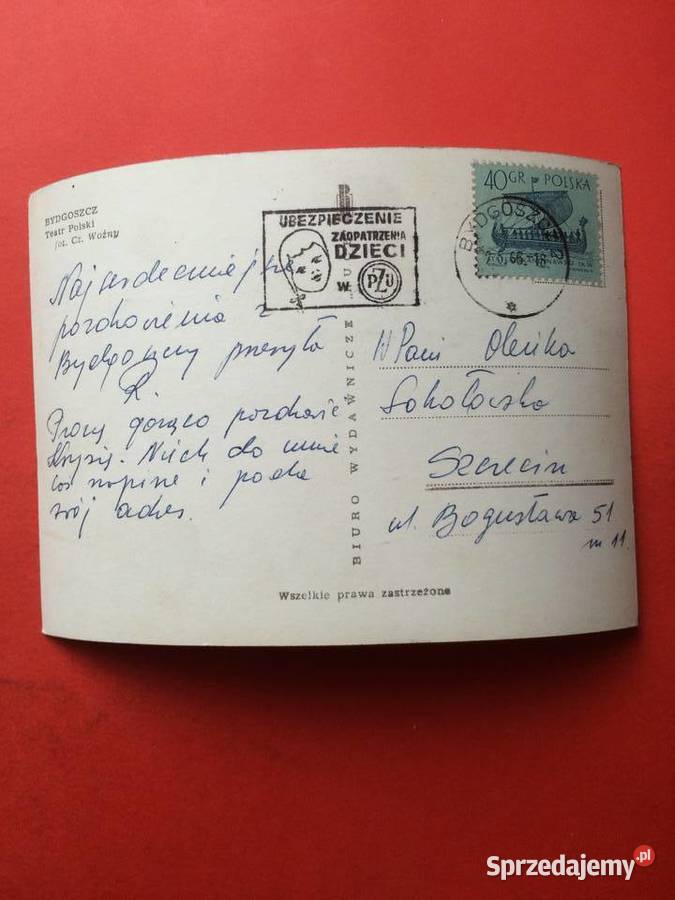 BYDGOSZCZ
Teatr Polski
fot. Cz. Woźny
UBEZPIECZENIE
ZAOPATRZENIA
DZIECI
W PZU
40 GR POLSKA
BYDGOSZCZ
66.-18
Najserdeczniejsze
pozdrowienia z
Bydgoszczy przesyła
R.
Proszę gorąco pozdrowić
Krysię. Niech do mnie
coś napisze i poda
swój adres.
BIURO WYDAWNICZE RU
W Pani Oleńka
Sokołowska
Szczecin
ul. Bogusława 51
m 11.
Wszelkie prawa zastrzeżone
Sprzedajemy.pl